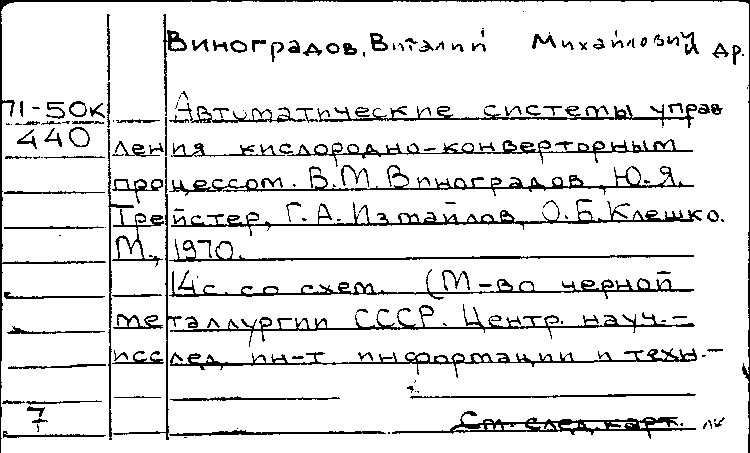 Виноградов, Виталий Михайлович и др.
71-50к Автоматические системы управ
440 ления кислородно-конверторным
процессом. В.М. Виноградов, Ю.Я.
Трейстер, Г.А. Измайлов, О.Б. Клешко.
М., 1970.
14с. со схем. (М-во черной
металлургии СССР. Центр. науч.-
исслед. ин-т. информации и техн.-
7 См. след. карт.